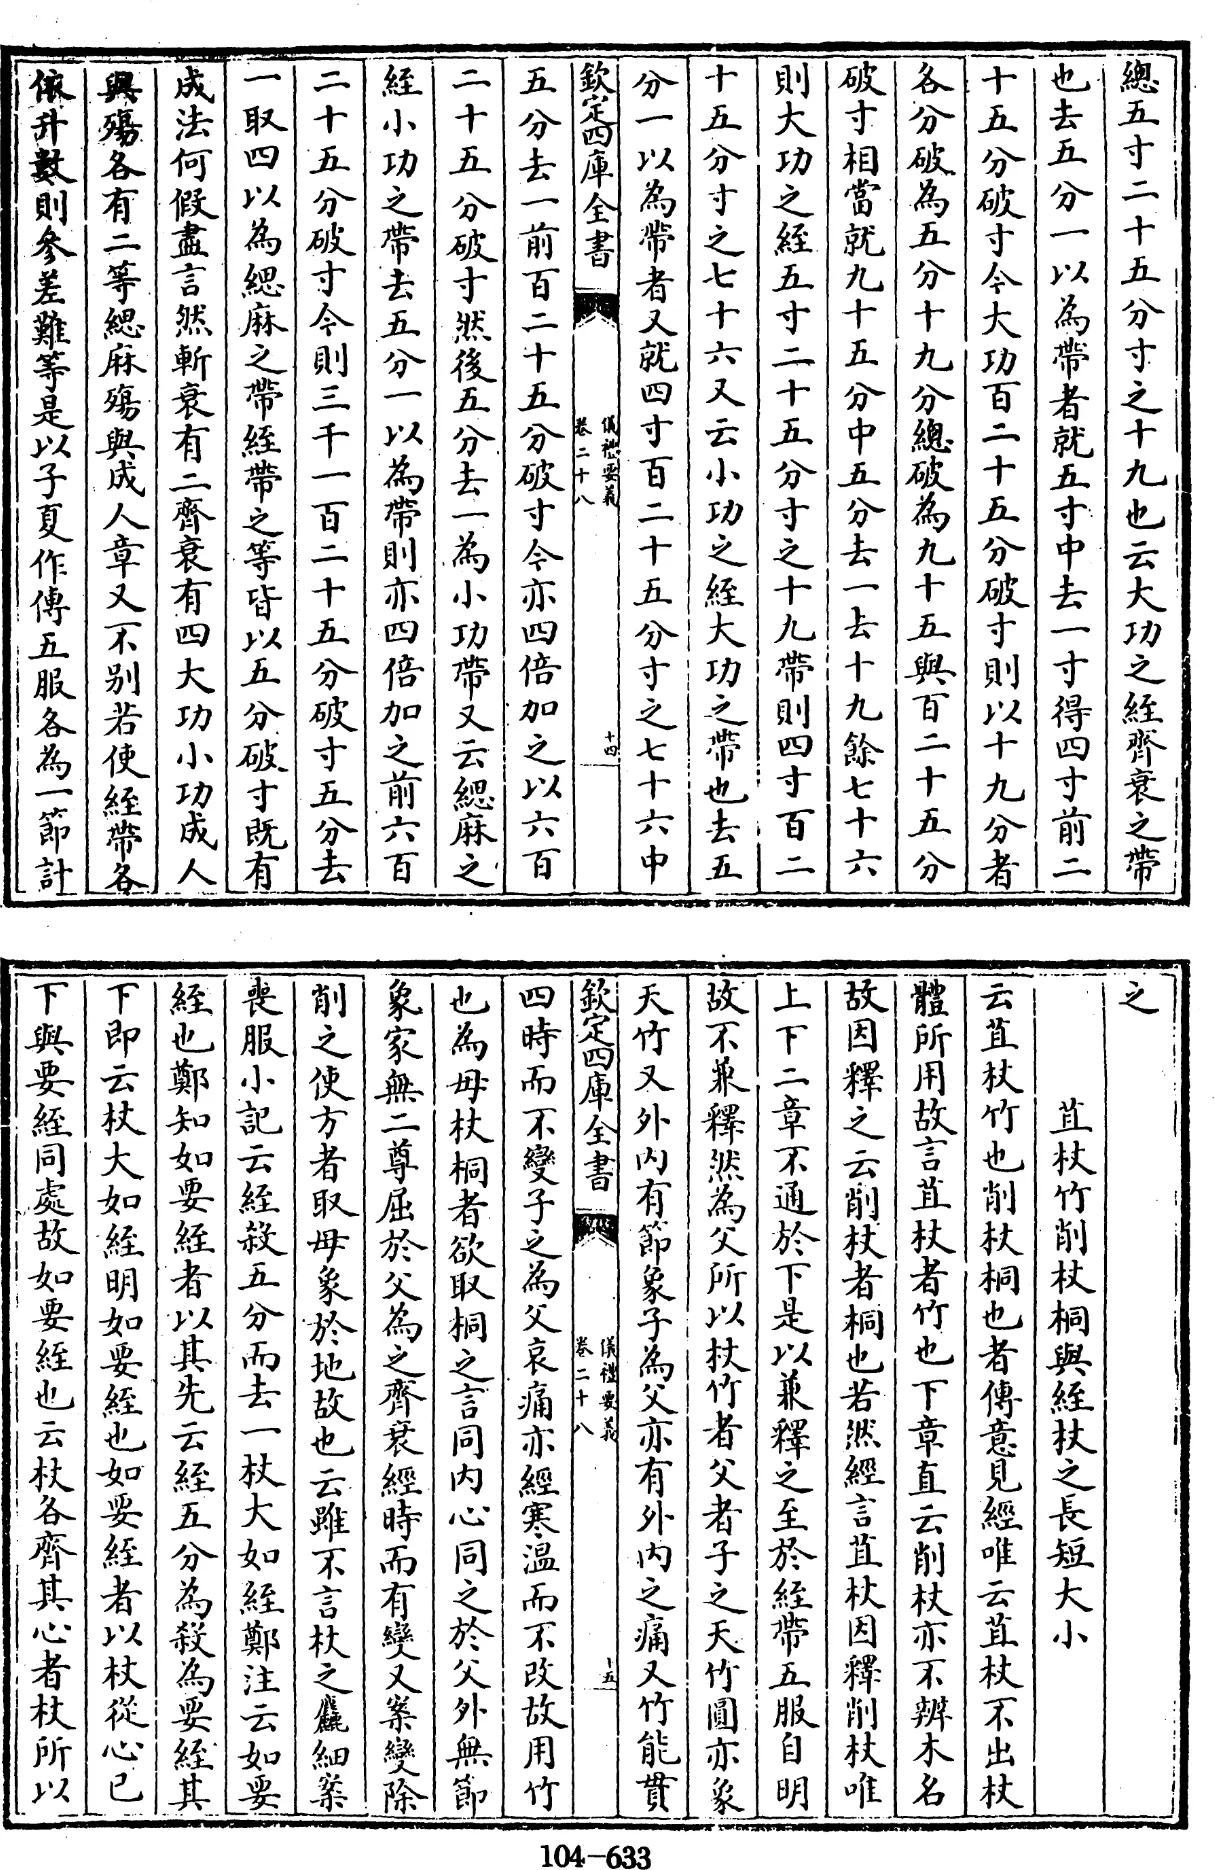 總五寸二十五分寸之十九也云大功之絰齊衰之帶
也去五分一以為帶者就五寸中去一寸得四寸前二
十五分破寸今大功百二十五分破寸則以十九分者
各分破為五分十九分總破為九十五與百二十五分
破寸相當就九十五分中五分去一去十九餘七十六
則大功之絰五寸二十五分寸之十九帶則四寸百二
十五分寸之七十六又云小功之絰大功之帶也去五
分一以為帶者又就四寸百二十五分寸之七十六中
欽定四庫全書
儀禮要義
卷二十八
十四
五分去一前百二十五分破寸今亦四倍加之以六百
二十五分破寸然後五分去一為小功帶又云緦麻之
絰小功之帶去五分一以為帶則亦四倍加之前六百
二十五分破寸今則三千一百二十五分破寸五分去
一取四以為緦麻之帶絰帶之等皆以五分破寸既有
成法何假盡言然斬衰有二齊衰有四大功小功成人
與殤各有二等緦麻殤與成人章又不别若使絰帶各
依升數則參差難等是以子夏作傳五服各為一節計
之
苴杖竹削杖桐與絰杖之長短大小
云苴杖竹也削杖桐也者傳意見經唯云苴杖不出杖
體所用故言苴杖者竹也下章直云削杖亦不辨木名
故因釋之云削杖者桐也若然經言苴杖因釋削杖唯
上下二章不通於下是以兼釋之至於絰帶五服自明
故不兼釋然為父所以杖竹者父者子之天竹圓亦象
天竹又外内有節象子為父亦有外内之痛又竹能貫
欽定四庫全書
儀禮要義
卷二十八
十五
四時而不變子之為父哀痛亦經寒温而不改故用竹
也為母杖桐者欲取桐之言同内心同之於父外無節
象家無二尊屈於父為之齊衰經時而有變又案變除
削之使方者取母象於地故也云雖不言杖之麤細案
喪服小記云絰殺五分而去一杖大如絰鄭注云如要
絰也鄭知如要絰者以其先云絰五分為殺為要絰其
下即云杖大如絰明如要絰也如要絰者以杖從心已
下與要絰同處故如要絰也云杖各齊其心者杖所以
104-633